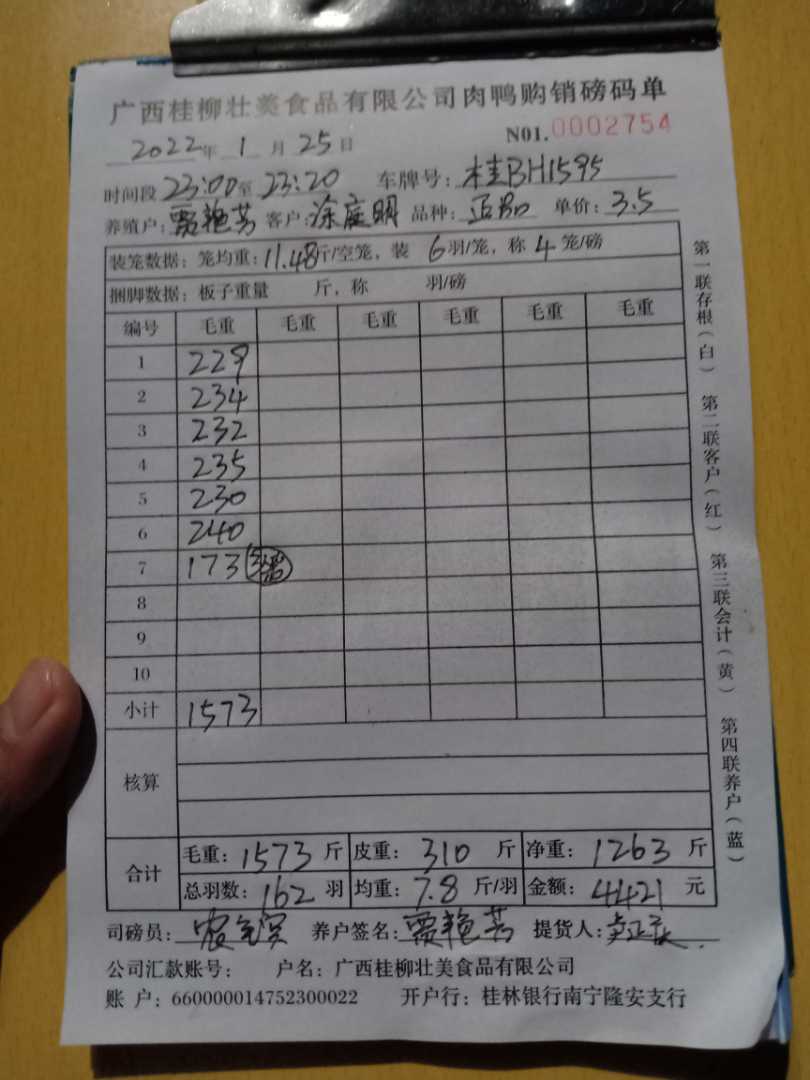 广西桂柳壮美食品有限公司肉鸭购销磅码单
2022年 1 月 25 日 N01. 0002754
时间段 23:00 至 23:20 车牌号: 桂BH1595
养殖户: 贾艳芳 客户: 涂庭明 品种: 单价: 3.5
装笼数据: 笼均重: 11.48 斤/空笼, 装 6 羽/笼, 称 4 笼/磅
捆脚数据: 板子重量 斤, 称 羽/磅
编号 毛重 毛重 毛重 毛重 毛重 毛重
1 229
2 234
3 232
4 235
5 230
6 240
7 173 3笼
8
9
10
小计 1573
核算
合计 毛重: 1573 斤 皮重: 310 斤 净重: 1263 斤
总羽数: 162 羽 均重: 7.8 斤/羽 金额: 4421 元
司磅员: 养户签名: 贾艳芳 提货人:
公司汇款账号: 户名: 广西桂柳壮美食品有限公司
账 户: 660000014752300022 开户行: 桂林银行南宁隆安支行
第一联存根(白) 第二联客户(红) 第三联会计(黄) 第四联养户(蓝)